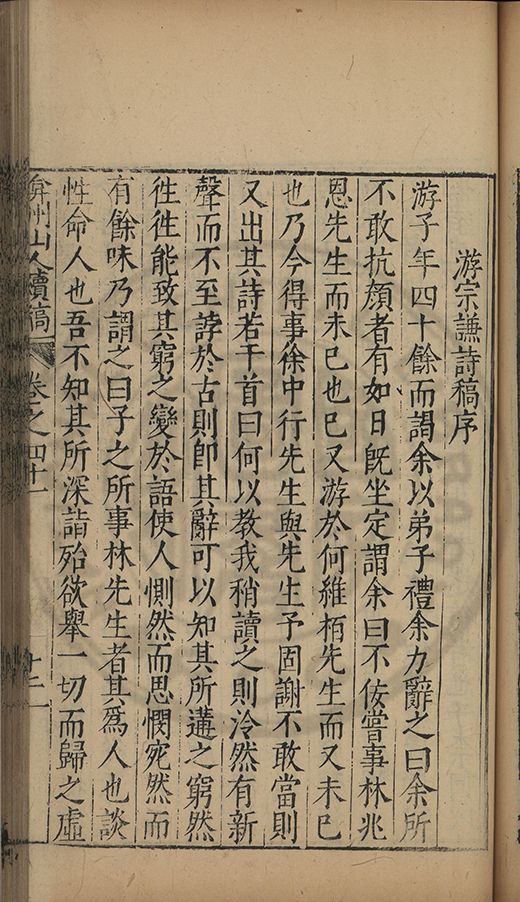 游宗謙詩稿序
游子年四十餘而謁余以弟子禮余力辭之曰余所
不敢抗顏者有如日旣坐定謂余曰不佞嘗事林兆
恩先生而未已也已又游於何維栢先生而又未已
也乃今得事徐中行先生與先生予固謝不敢當則
又出其詩若干首曰何以教我稍讀之則泠然有新
聲而不至誖於古則卽其辭可以知其所遘之窮然
徃徃能致其窮之變於語使人惻然而思憫宛然而
有餘味乃謂之曰子之所事林先生者其爲人也談
性命人也吾不知其所深詣殆欲舉一切而歸之虛
弇州山人續稿 卷之四十一 十二